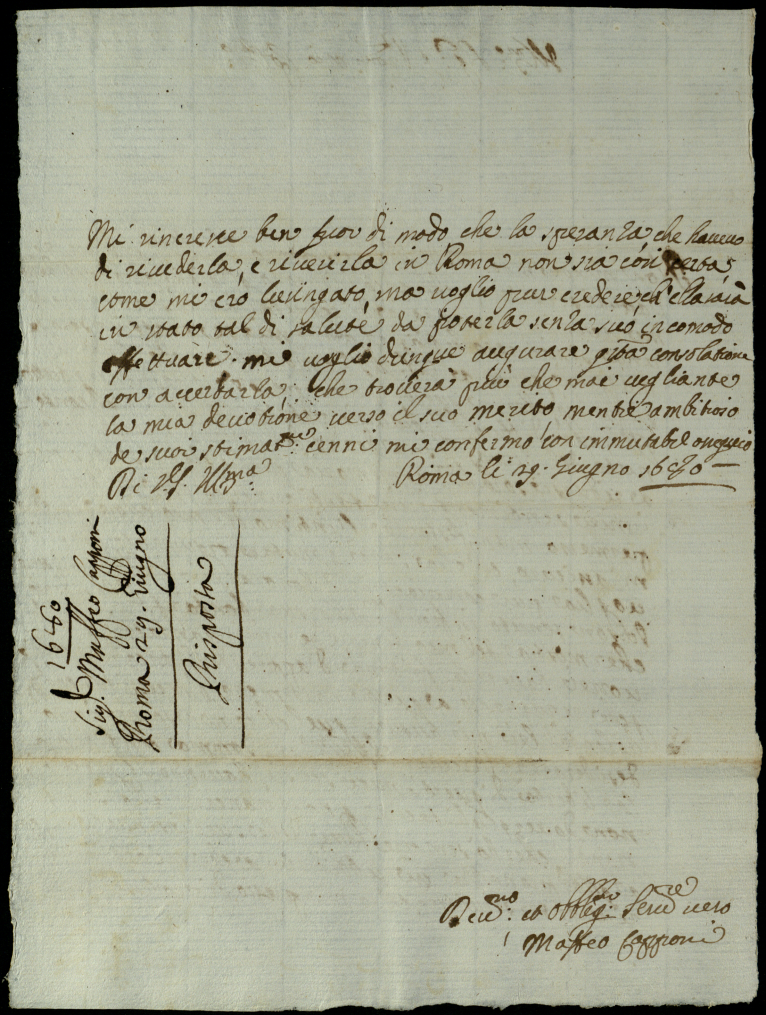 Mi rincresce ben fuor di modo che la speranza, che havevo
di rivederla, e riverirla in Roma non sia così certa,
come mi ero lusingato, ma voglio pur credere ch'ella sarà
in stato tal di salute da poterla senza suo incomodo
effettuare. mi voglio dunque augurare q.ta consolatione
con accertarla, che troverà più che mai vegliante
la mia devotione verso il suo merito mentre ambitioso
de suoi stimat.mi cenni mi confermo con immutabil ossequio
Di V.S. Ill.ma Roma li 29. Giugno 1680
1680
Sig.r Maffeo Capponi
Roma 29. Giugno
Risposta
Dev.mo et Obblig.mo Serv.re vero
Maffeo Capponi